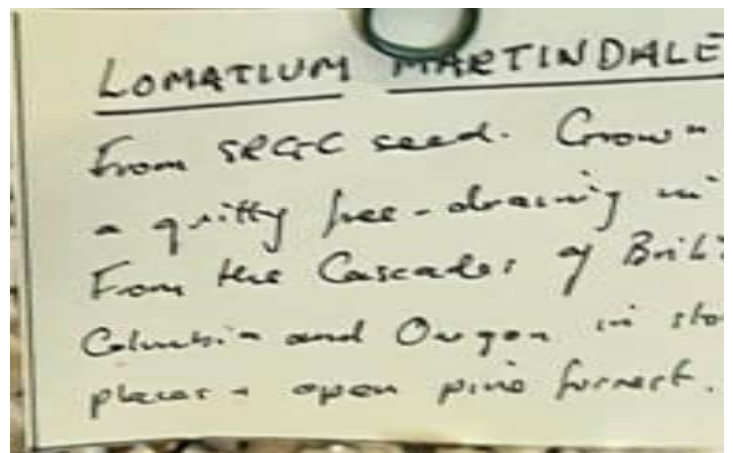 LOMATIUM MARTINDALE
From SRGC seed. Grown
a gritty free-draining mi
From the Cascades of Briti
Columbia and Oregon in sto
places + open pine forrest.